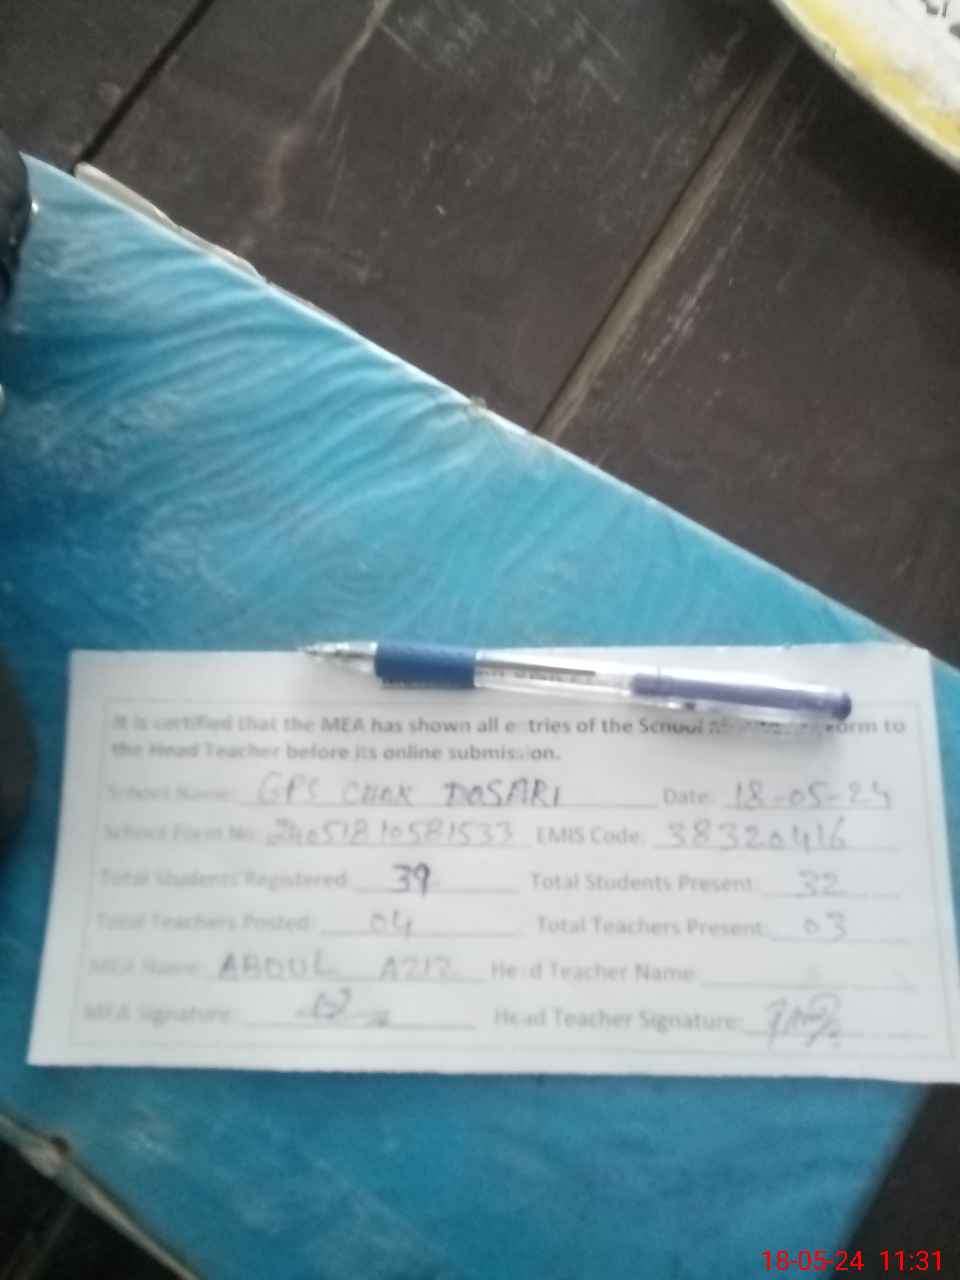 It is certified that the MEA has shown all entries of the School Form to
the Head Teacher before its online submission.
School Name: GPS CHAK DOSARI Date: 18-05-24
School Form No: 24051810581533 EMIS Code: 38320416
Total Students Registered: 39 Total Students Present: 32
Total Teachers Posted: 04 Total Teachers Present: 03
MEA Name: ABDUL AZIZ Head Teacher Name:
MEA Signature: Head Teacher Signature:
18-05-24 11:31